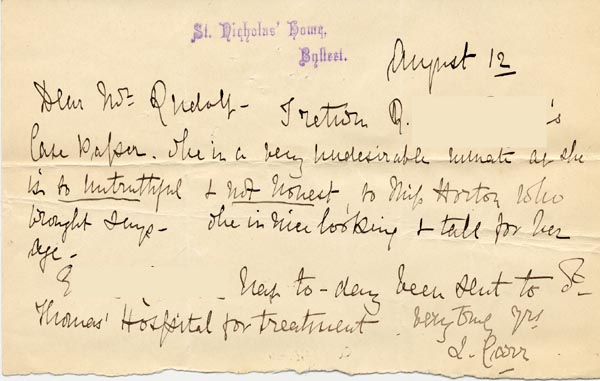 St. Nicholas' Home,
Byfleet.
August 12
Dear Mr. Rudolf - I return R. 's
Case Paper. She is a very undesirable inmate as she
is so untruthful & not honest, so Miss Horton who
brought says - She is nice looking & tall for her
age -
E has to-day been sent to St
Thomas' Hospital for treatment very truly yrs
L. Carr